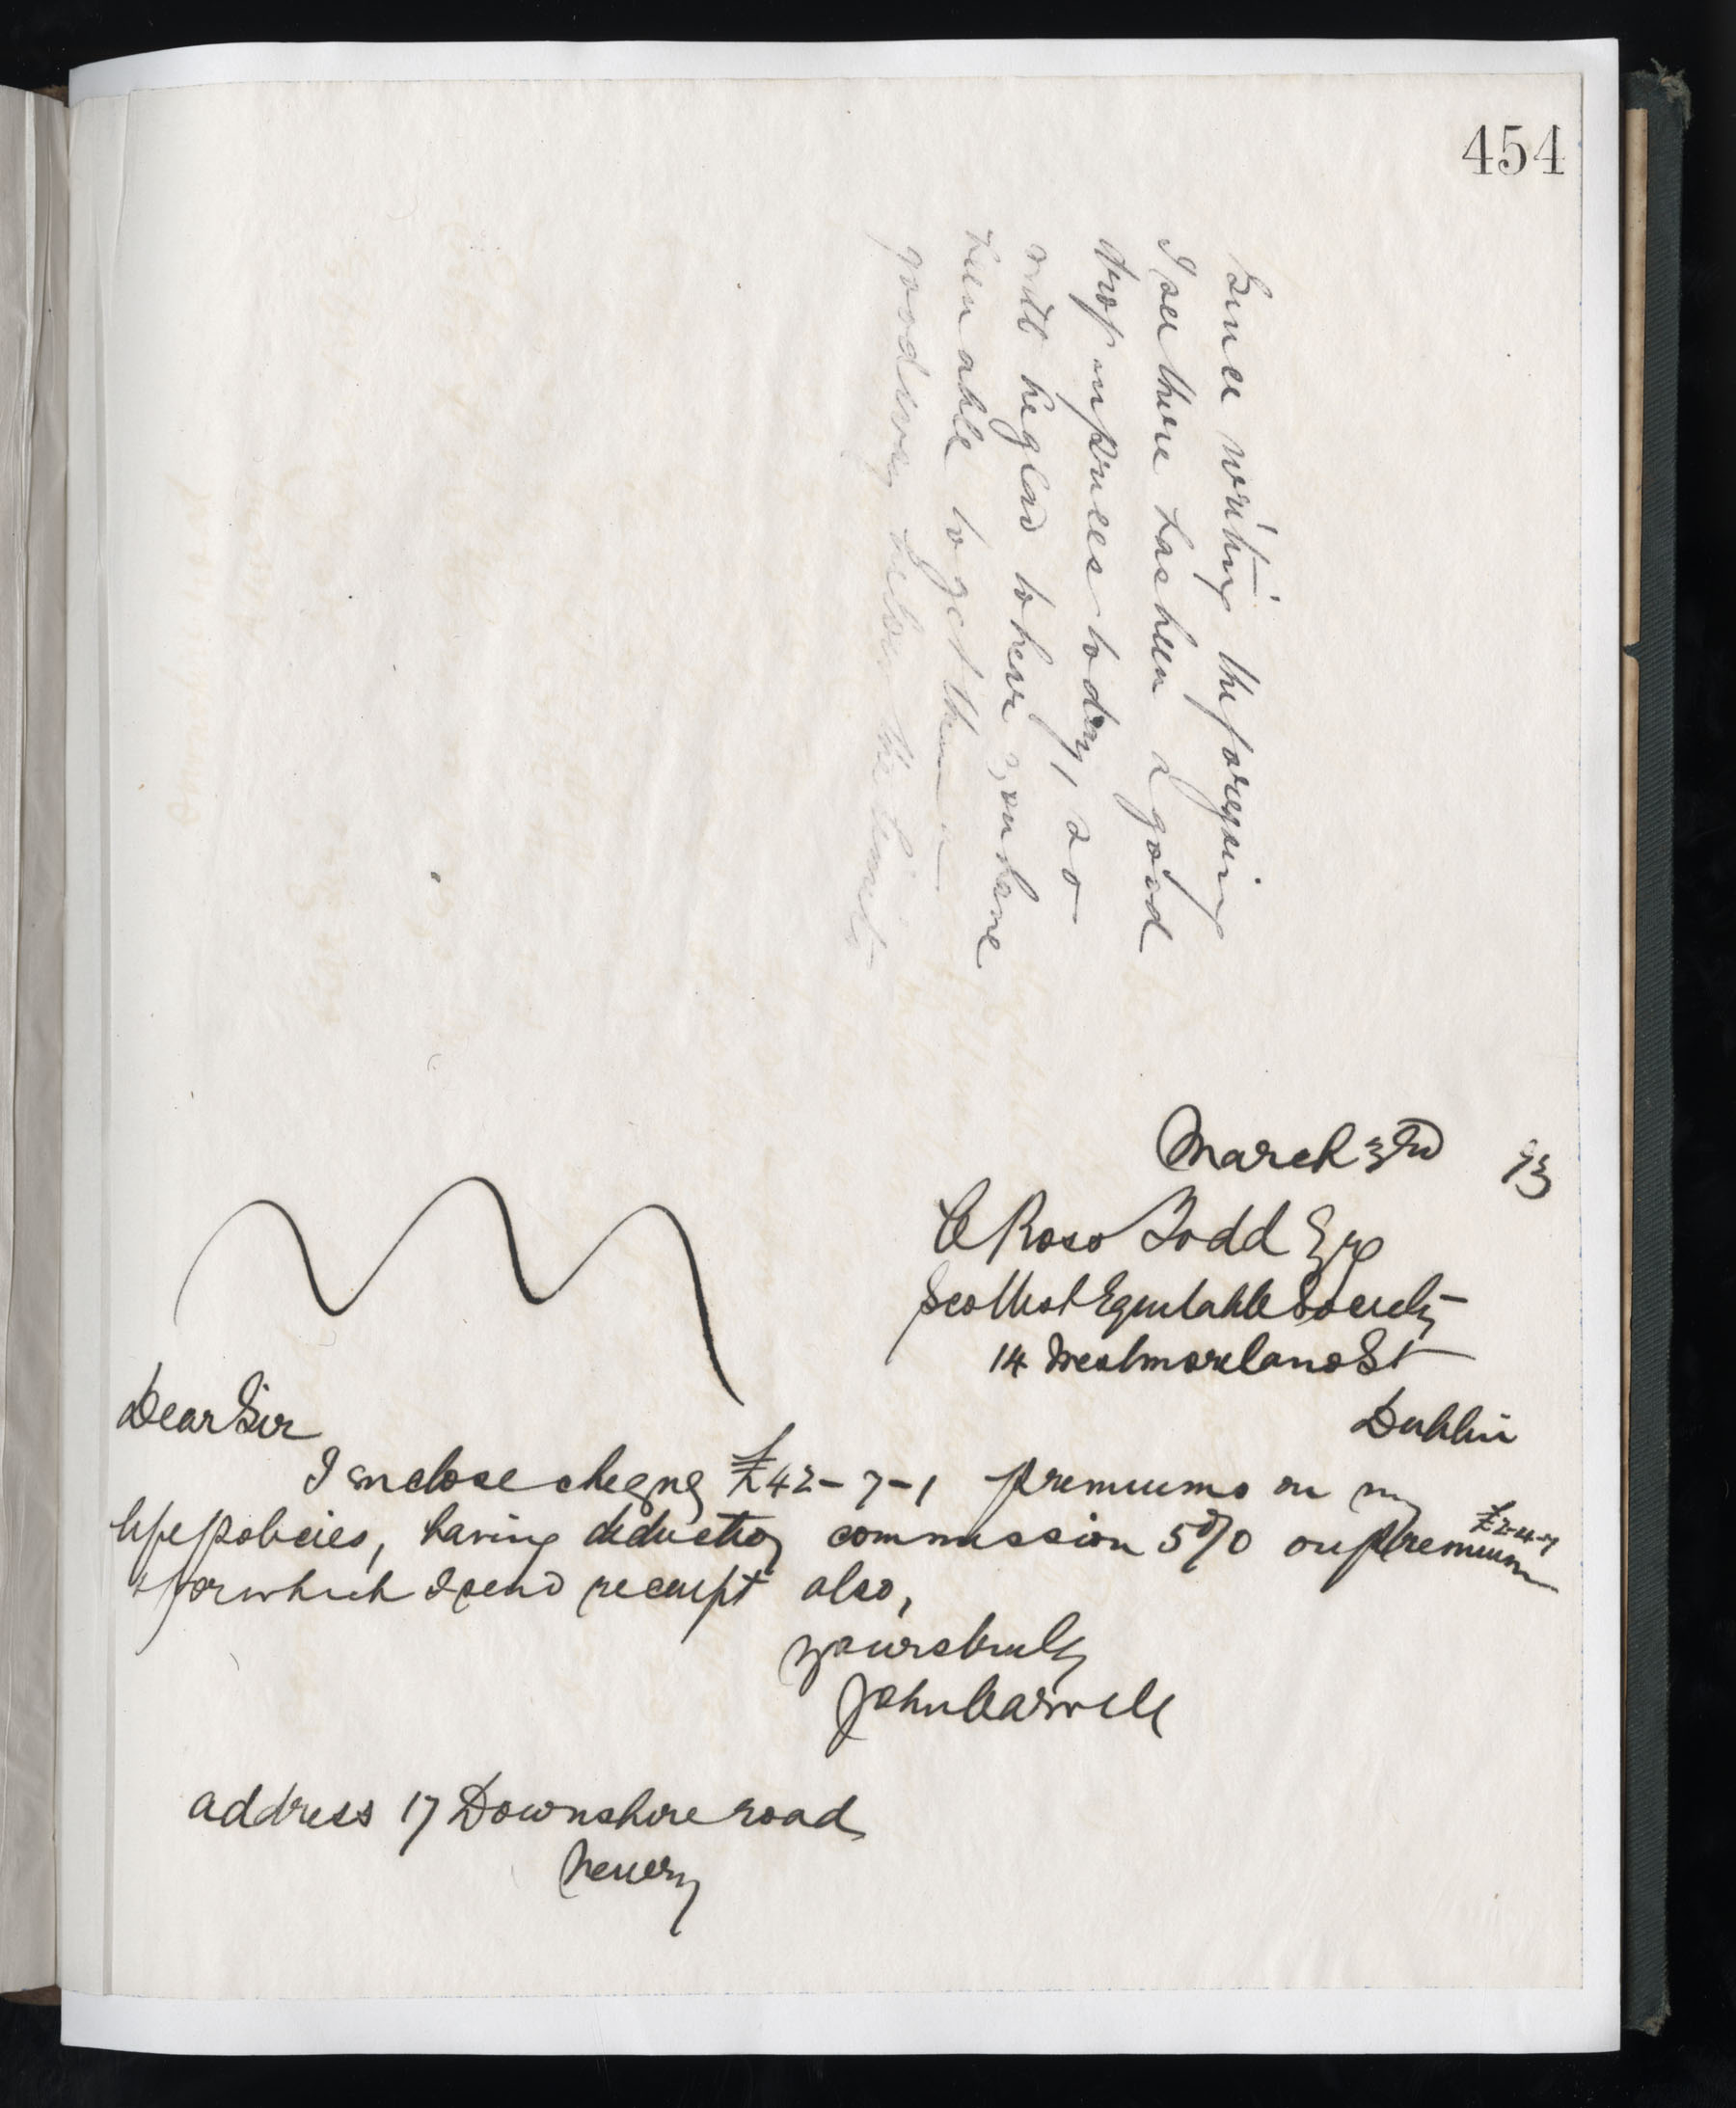 454
Since writing the foregoing
I see there has been a good
drop in prices today, so
will be glad to hear you have
been able to get them in a
good way below the limit
March 3rd 93
C Ross Todd Esq
Scottish Equitable Society
14 Westmoreland St
Dublin
Dear Sir
I enclose cheque £42-7-1 premiums on my
life policies, having deducted commission 5% on premium £2-4-7
for which I send receipt also,
yours truly
John Carvill
address 17 Downshire road
Newry